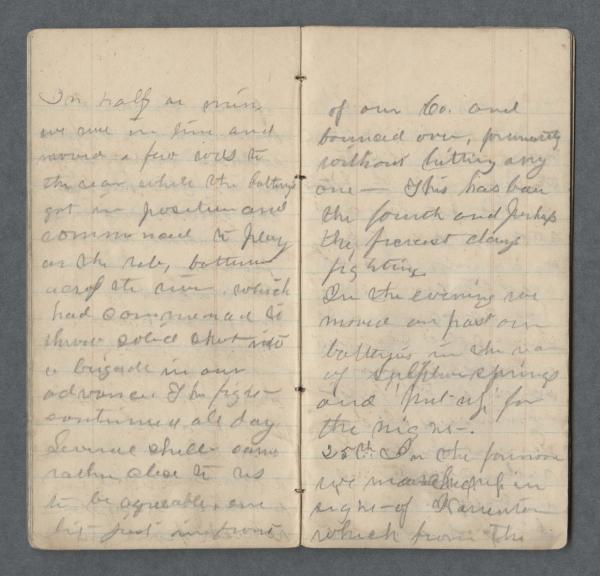 In half a min,
we were in line and
moved a few rods to
the rear while the battery
got in position and
commenced to play
on the reb, batteries
across the river which
had commenced to
throw solid shot into
a brigade in our
advance. The fight
continued all day
Several shells came
rather close to us
to be agreable, one
hit just in front
of our Co. and
bounced over,
without hitting any
one — This has been
the fourth and perhaps
the fiercest days
fighting
In the evening we
moved on past our
batterys in the
of springs
and "put-up" for
the night.
25th In the forenoon
we marched up in
sight of Warrenton
which from the